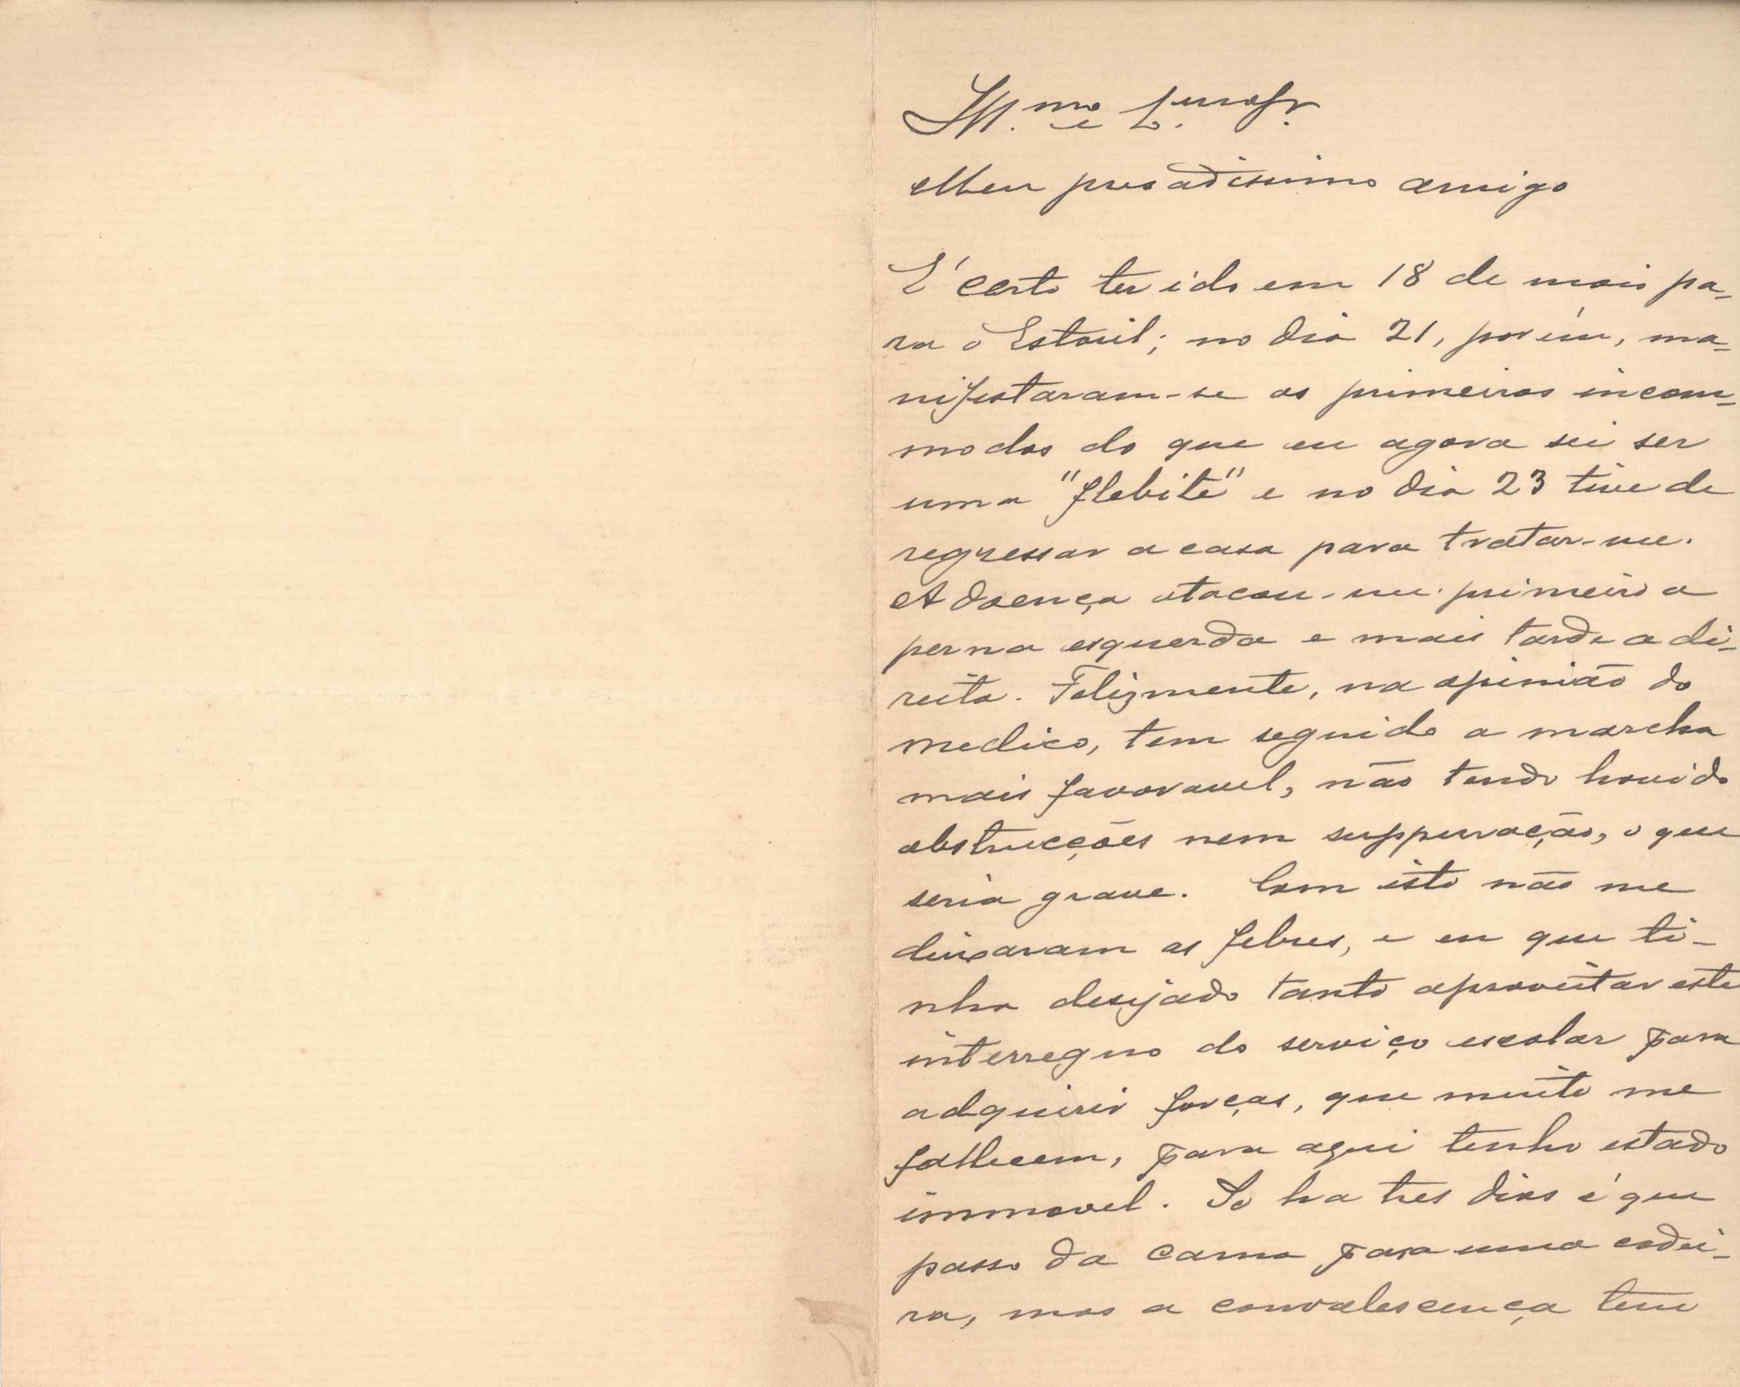 Ill.mo e Ex.mo Snr.
Meu presadissimo amigo
É certo ter ido em 18 de maio pa-
ra o Estoril; no dia 21, porém, ma-
nifestaram-se os primeiros incom-
modos do que eu agora sei ser
uma "flebite" e no dia 23 tive de
regressar a casa para tratar-me.
A doença atacou-me primeiro a
perna esquerda e mais tarde a di-
reita. Felizmente, na opinião do
medico, tem seguido a marcha
mais favoravel, não tendo havido
obstrucções nem suppuração, o que
seria grave. Com isto não me
deixaram as febres, e eu que ti-
nha desejado tanto aproveitar este
interregno do serviço escolar para
adquirir forças, que muito me
fallecem, para aqui tenho estado
immovel. So ha tres dias é que
passo da cama para uma cadei-
ra, mas a convalescença tem